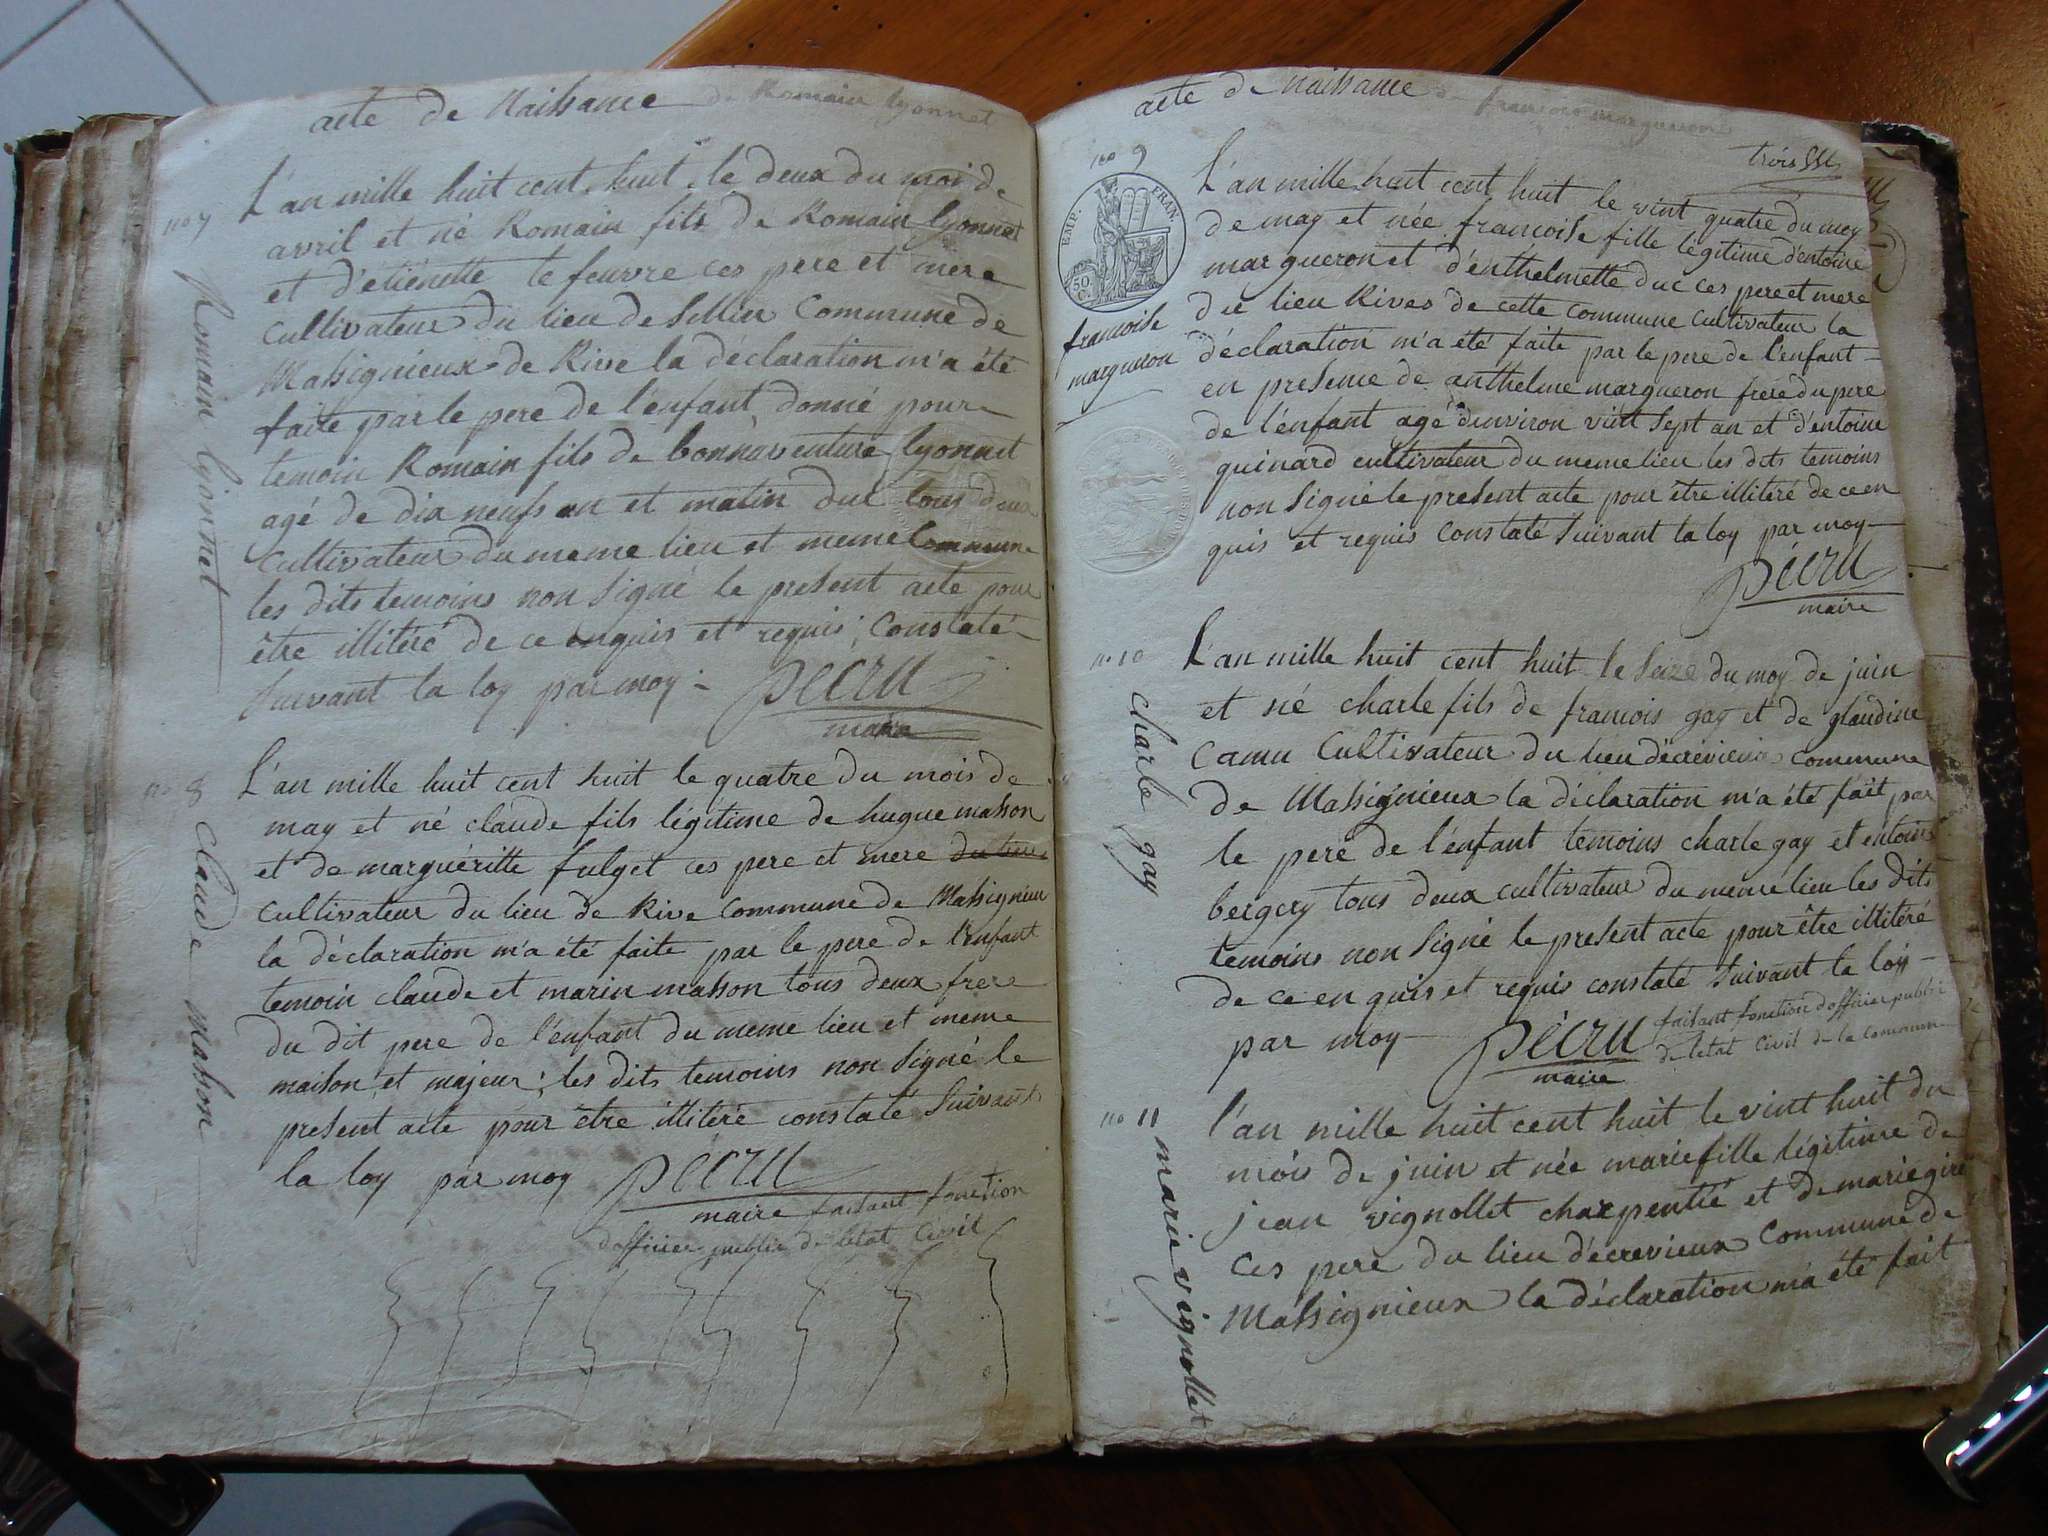 acte de Naissance de Romain lyonnet
no 7
Romain lyonnet
L'an mille huit cent huit le deux du moi de
avril et né Romain fils de Romain lyonnet
et d'etiénette le feuvre ces pere et mere
cultivateur du lieu de Sillin Commune de
Massignieux de Rive la déclaration m'a été
faite par le pere de l'enfant donné pour
temoin Romain fils de bonnaventure lyonnet
agé de dix neufs an et matin duc tous deux
cultivateur du meme lieu et meme Commune
les dits temoins non signé le present acte pour
être illitéré de ce enquis et requis, Constaté
suivant la loy par moy
pécru
maire
no 8
claude masson
L'an mille huit cent huit le quatre du mois de
may et né claude fils légitime de hugue masson
et de marguéritte fulget ces pere et mere du lieu
cultivateur du lieu de Rive commune de Massignieu
la déclaration m'a été faite par le pere de l'enfant
temoin claude et marin masson tous deux frere
du dit pere de l'énfant du meme lieu et meme
maison et majeur; les dits temoins non signé le
present acte pour être illitéré constaté suivant
la loy par moy pécru
maire faisant fonction
dofficier public de létat civil
acte de naissance de francoise margueron
trois SSL
no 9
EMP. FRAN.
50 C.
francoise
margueron
L'an mille huit cent huit le vint quatre du moy
de may et née francoise fille légitime d'entoine
margueron et d'énthelmette duc ces pere et mere
du lieu Rives de cette commune cultivateur la
déclaration m'a été faite par le pere de l'enfant
en presence de anthelme margueron frere du pere
de l'énfant agé d'environ vint sept an et d'entoine
guinard cultivateur du meme lieu les dits temoins
non signé le present acte pour être illitéré de ce en
quis et requis constaté suivant la loy par moy
pécru
maire
no 10
charle gay
L'an mille huit cent huit le seize du moy de juin
et né charle fils de francois gay et de glaudine
Camu Cultivateur du lieu décrévieux commune
de Massignieux la déclaration m'a été fait par
le pere de l'énfant temoins charle gay et entoine
bergery tous deux cultivateur du meme lieu les dits
temoins non signé le present acte pour être illitéré
de ce en quis et requis constaté suivant la loy
par moy pécru faisant fonction dofficier public
maire de létat civil de la commune
no 11
marie vignollet
l'an mille huit cent huit le vint huit du
mois de juin et née marie fille légitime de
jean vignollet charpentié et de marie gire
ces pere du lieu décrevieux Commune de
Massignieux la déclaration m'a été fait